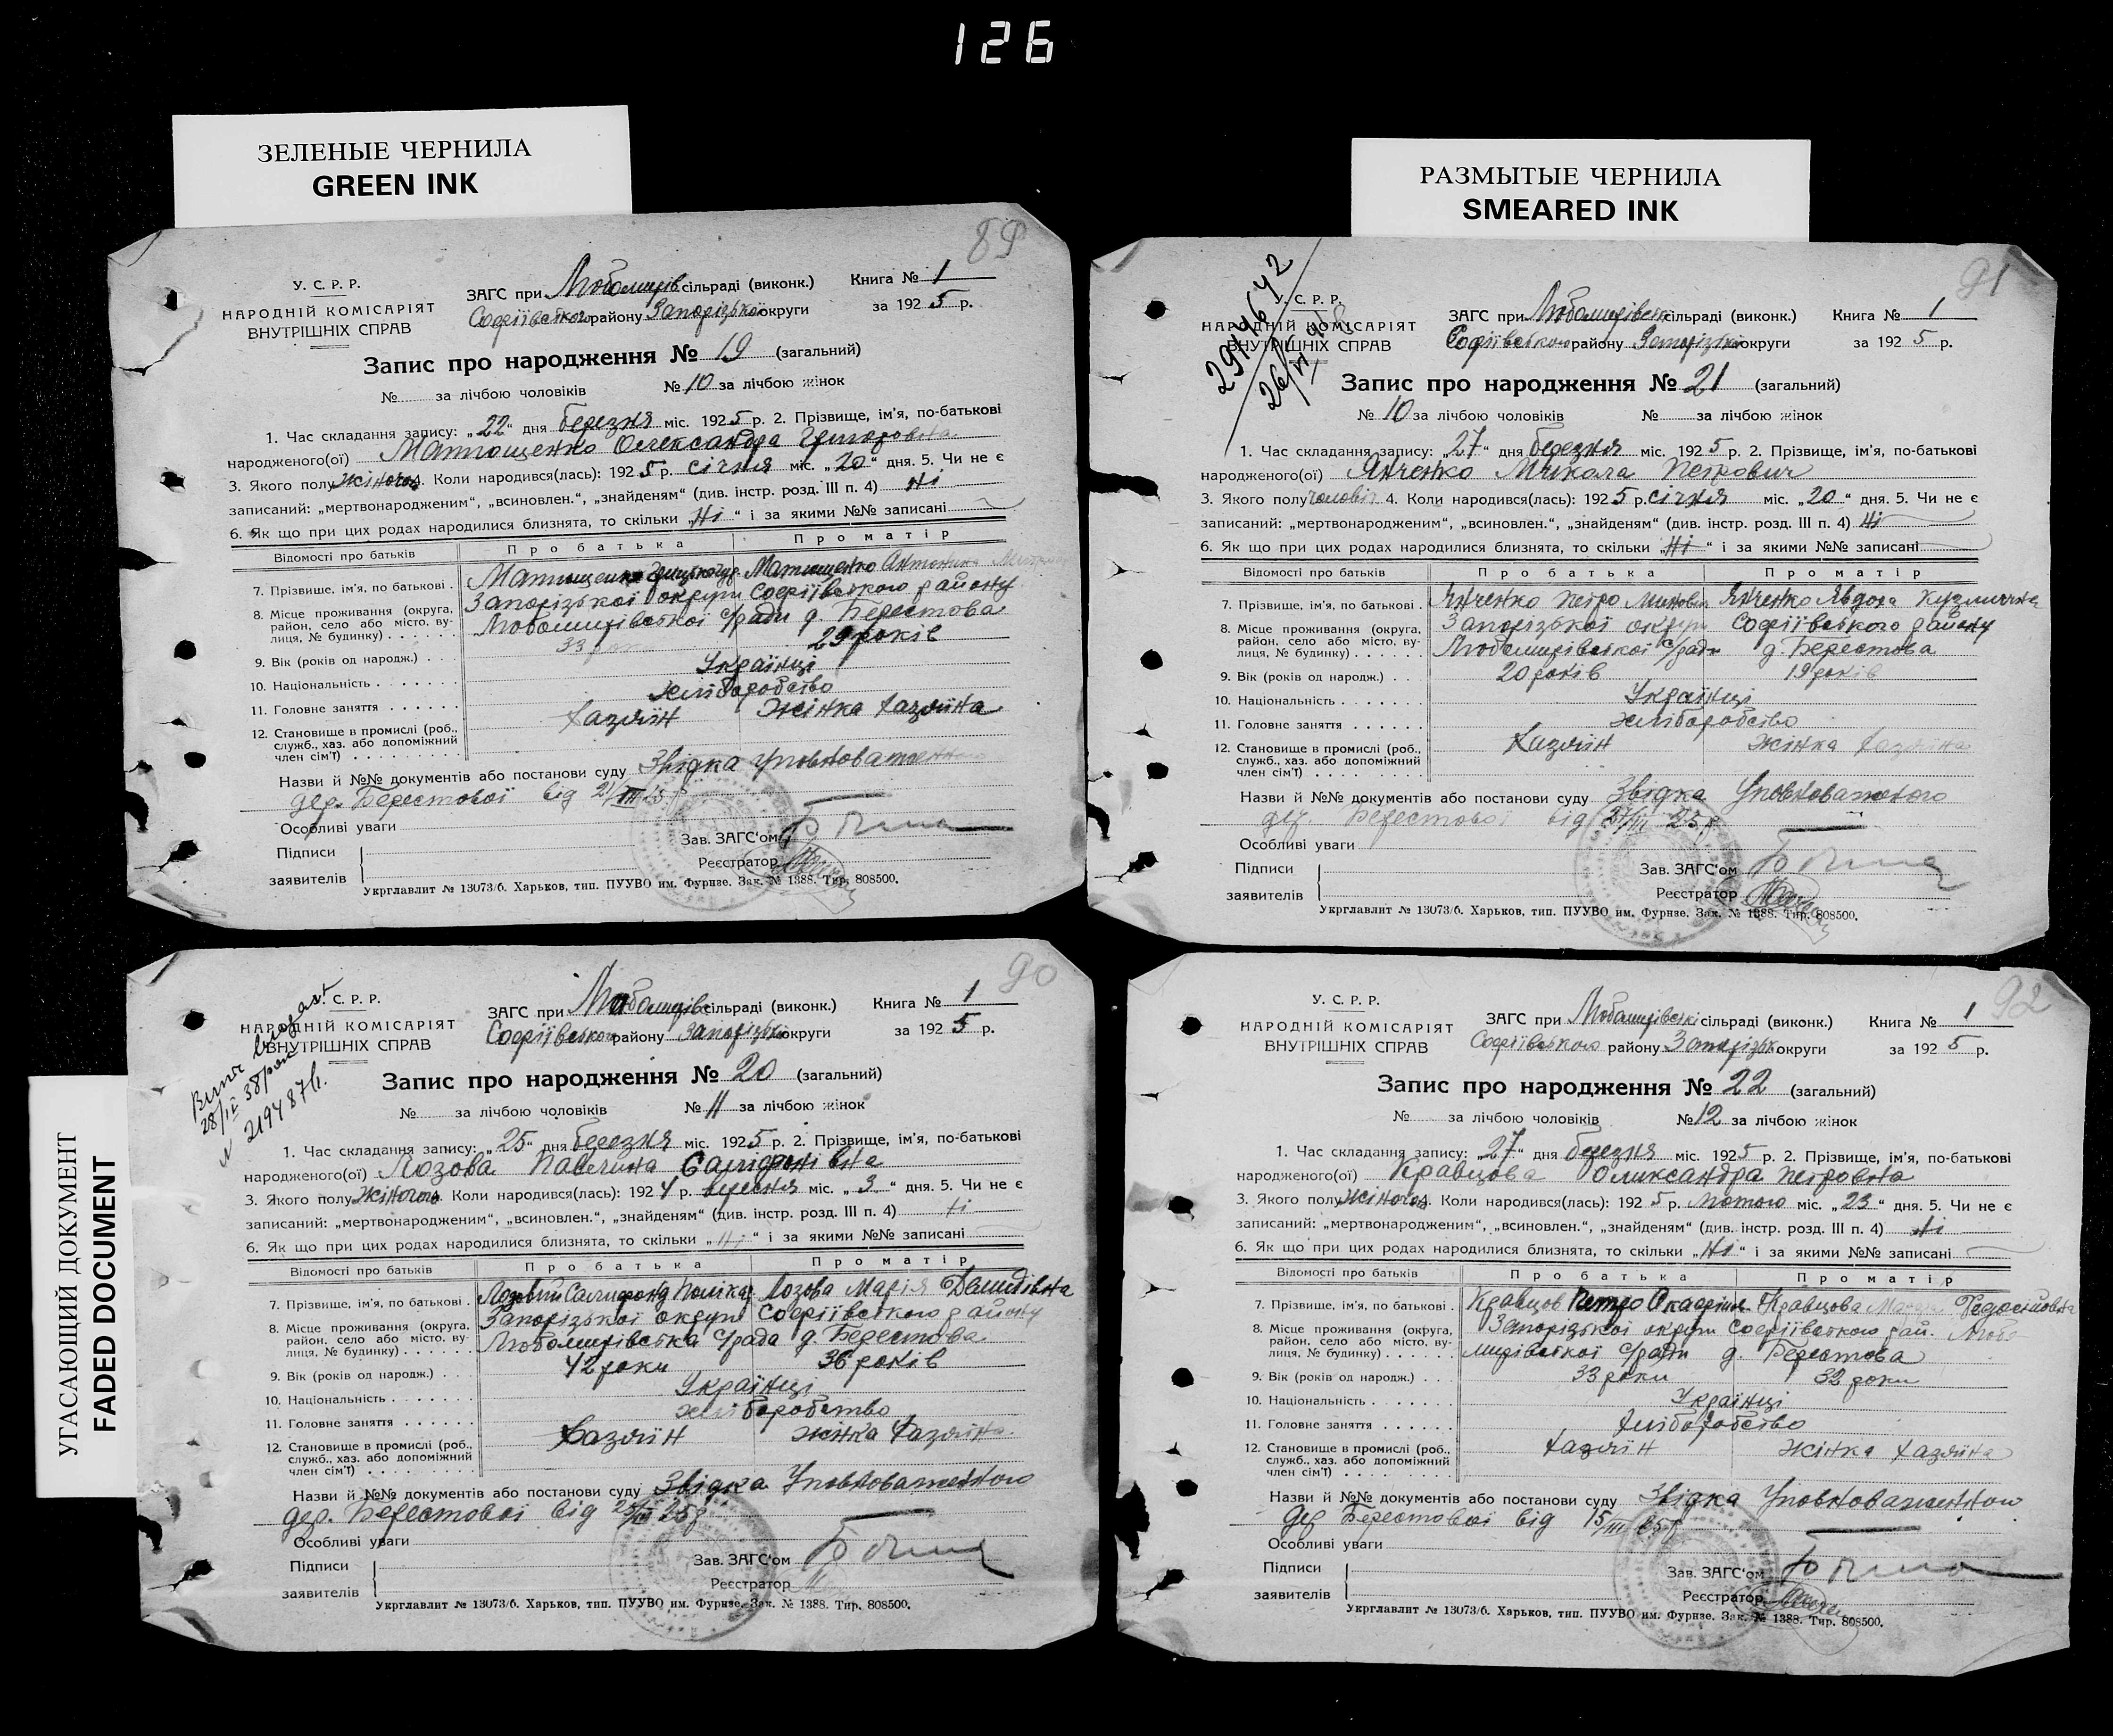 126
ЗЕЛЕНЫЕ ЧЕРНИЛА
GREEN INK
89
У. С. Р. Р.
НАРОДНІЙ КОМІСАРІЯТ
ВНУТРІШНІХ СПРАВ
ЗАГС при Любомирів сільраді (виконк.) Книга № 1
Софіївського району Запорізької округи за 1925 р.
Запис про народження № 19 (загальний)
№ за лічбою чоловіків № 10 за лічбою жінок
1. Час складання запису: „22“ дня березня міс. 1925 р. 2. Прізвище, ім'я, по-батькові
народженого(ої) Матющенко Олександра Григоровна
3. Якого полу жіночого. Коли народився(лась): 1925 р. січня міс. „20“ дня. 5. Чи не є
записаний: „мертвонародженим“, „всиновлен.“, „знайденям“ (див. інстр. розд. III п. 4) Ні
6. Як що при цих родах народилися близнята, то скільки „Ні“ і за якими №№ записані
Відомості про батьків Про батька Про матір
7. Прізвище, ім'я, по батькові . Матющенко Матющенко Антонина
8. Місце проживання (округа, район, село або місто, вулиця, № будинку) . . . . . . Запорізької округи Софіївського району
Любомирівської с/ради д. Берестова
9. Вік (років од народж.) . . . 33 29 років
10. Національність . . . . . . . Українці
11. Головне заняття . . . . . . хліборобство
12. Становище в промислі (роб., служб., хаз. або допоміжний член сім'ї) . . . . . . . . . Хазяїн Жінка хазяїна
Назви й №№ документів або постанови суду Звідка Уповноваженного
дер. Берестової від 21/III 25 р.
Особливі уваги
Підписи
заявителів
Зав. ЗАГС'ом
Реєстратор
Укрглавлит № 13073/б. Харьков, тип. ПУУВО им. Фурнзе. Зак. № 1388. Тир. 808500.
РАЗМЫТЫЕ ЧЕРНИЛА
SMEARED INK
91
У. С. Р. Р.
НАРОДНІЙ КОМІСАРІЯТ
ВНУТРІШНІХ СПРАВ
ЗАГС при Любомирівськ сільраді (виконк.) Книга № 1
Софіївського району Запорізької округи за 1925 р.
Запис про народження № 21 (загальний)
№ 10 за лічбою чоловіків № за лічбою жінок
1. Час складання запису: „27“ дня березня міс. 1925 р. 2. Прізвище, ім'я, по-батькові
народженого(ої) Янченко Микола Петрович
3. Якого полу чоловіч 4. Коли народився(лась): 1925 р. січня міс. „20“ дня. 5. Чи не є
записаний: „мертвонародженим“, „всиновлен.“, „знайденям“ (див. інстр. розд. III п. 4) Ні
6. Як що при цих родах народилися близнята, то скільки „Ні“ і за якими №№ записані
Відомості про батьків Про батька Про матір
7. Прізвище, ім'я, по батькові . Янченко Петро Янченко Явдоха
8. Місце проживання (округа, район, село або місто, вулиця, № будинку) . . . . . Запорізької округи Софіївського району
Любомирівської с/ради д. Берестова
9. Вік (років од народж.) . . 20 років 19 років
10. Національність . . . . . . . Українці
11. Головне заняття . . . . . . хліборобство
12. Становище в промислі (роб., служб., хаз. або допоміжний член сім'ї) . . . . . . . . . Хазяїн Жінка хазяїна
Назви й №№ документів або постанови суду Звідка Уповноваженого
дер. Берестової від 21/III 25 р.
Особливі уваги
Підписи
заявителів
Зав. ЗАГС'ом
Реєстратор
Укрглавлит № 13073/б. Харьков, тип. ПУУВО им. Фурнзе. Зак. № 1388. Тир. 808500.
УГАСАЮЩИЙ ДОКУМЕНТ
FADED DOCUMENT
90
У. С. Р. Р.
НАРОДНІЙ КОМІСАРІЯТ
ВНУТРІШНІХ СПРАВ
ЗАГС при Любомирівс сільраді (виконк.) Книга № 1
Софіївського району Запорізької округи за 1925 р.
Запис про народження № 20 (загальний)
№ за лічбою чоловіків № 11 за лічбою жінок
1. Час складання запису: „25“ дня березня міс. 1925 р. 2. Прізвище, ім'я, по-батькові
народженого(ої) Лозова Павелина
3. Якого полу жіночого. Коли народився(лась): 1924 р. вересня міс. „3“ дня. 5. Чи не є
записаний: „мертвонародженим“, „всиновлен.“, „знайденям“ (див. інстр. розд. III п. 4) Ні
6. Як що при цих родах народилися близнята, то скільки „Ні“ і за якими №№ записані
Відомості про батьків Про батька Про матір
7. Прізвище, ім'я, по батькові . Лозовий Лозова Марія Демидівна
8. Місце проживання (округа, район, село або місто, вулиця, № будинку) . . . . . . Запорізької округи Софіївського району
Любомирівська с/рада д. Берестова
9. Вік (років од народж.) . . . 42 роки 36 років
10. Національність . . . . . . . Українці
11. Головне заняття . . . . . . хліборобство
12. Становище в промислі (роб., служб., хаз. або допоміжний член сім'ї) . . . . . . . . . Хазяїн жінка хазяїна
Назви й №№ документів або постанови суду Звідка Уповноваженного
дер. Берестової від 25/III 25 р.
Особливі уваги
Підписи
заявителів
Зав. ЗАГС'ом
Реєстратор
Укрглавлит № 13073/б. Харьков, тип. ПУУВО им. Фурнзе. Зак. № 1388. Тир. 808500.
92
У. С. Р. Р.
НАРОДНІЙ КОМІСАРІЯТ
ВНУТРІШНІХ СПРАВ
ЗАГС при Любомирівські сільраді (виконк.) Книга № 1
Софіївського району Запорізьк округи за 1925 р.
Запис про народження № 22 (загальний)
№ за лічбою чоловіків № 12 за лічбою жінок
1. Час складання запису: „27“ дня березня міс. 1925 р. 2. Прізвище, ім'я, по-батькові
народженого(ої) Кравцова Олександра Петровна
3. Якого полу жіночого. Коли народився(лась): 1925 р. Лютого міс. „23“ дня. 5. Чи не є
записаний: „мертвонародженим“, „всиновлен.“, „знайденям“ (див. інстр. розд. III п. 4) Ні
6. Як що при цих родах народилися близнята, то скільки „Ні“ і за якими №№ записані
Відомості про батьків Про батька Про матір
7. Прізвище, ім'я, по батькові . Кравцов Петро Кравцова
8. Місце проживання (округа, район, село або місто, вулиця, № будинку) . . . . . . Запорізької округи Софіївського рай. Любо
мирівської с/ради д. Берестова
9. Вік (років од народж.) . . . 33 роки 32 роки
10. Національність . . . . . . . Українці
11. Головне заняття . . . . . . хліборобство
12. Становище в промислі (роб., служб., хаз. або допоміжний член сім'ї) . . . . . . . . . хазяїн жінка хазяїна
Назви й №№ документів або постанови суду Звідка Уповноваженного
дер Берестової від 15/III 25 р
Особливі уваги
Підписи
заявителів
Зав. ЗАГС'ом
Реєстратор
Укрглавлит № 13073/б. Харьков, тип. ПУУВО им. Фурнзе. Зак. № 1388. Тир. 808500.